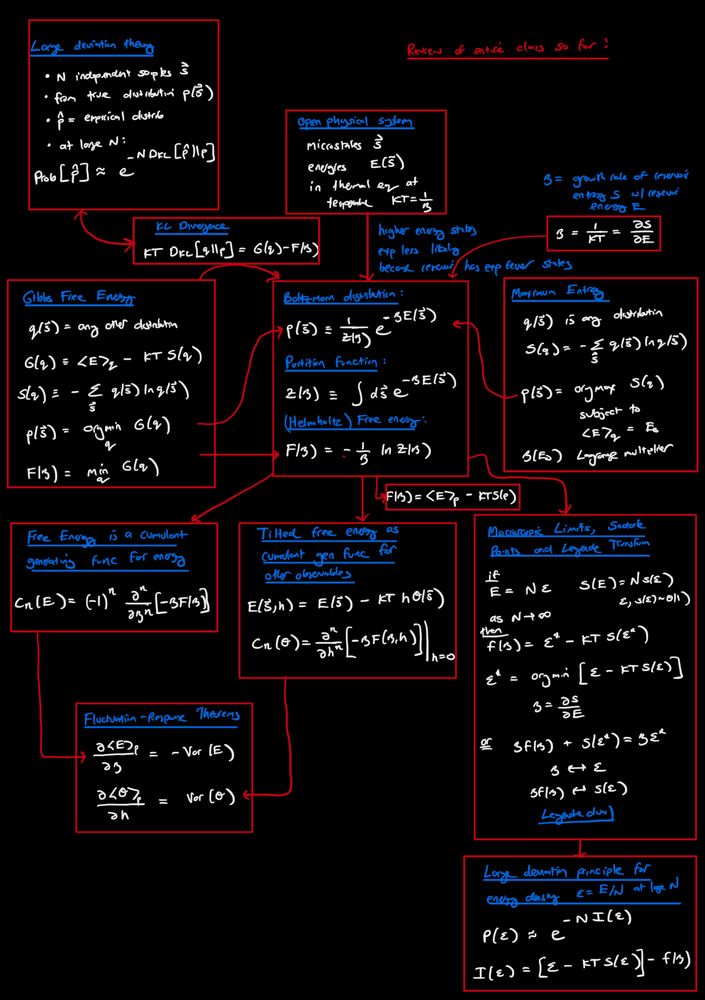 Review of entire class so far!
Large deviation theory
• N independent samples s⃗
• from true distribution p(s⃗)
• p̂ = empirical distrib
• at large N:
Prob[p̂] ≈ e^{-N D_KL[p̂||p]}
Open physical system
microstates s⃗
energies E(s⃗)
in thermal eq at
temperature KT = 1/β
β = growth rate of reservoir
entropy S w/ reservoir
energy E
β = 1/KT = ∂S/∂E
KL Divergence
KT D_KL[q||p] = G(q) - F(β)
higher energy states
exp less likely
because reservoir has exp fewer states
Gibbs Free Energy
q(s⃗) = any other distribution
G(q) ≡ <E>_q - KT S(q)
S(q) ≡ - Σ_s⃗ q(s⃗) ln q(s⃗)
p(s⃗) = argmin_q G(q)
F(β) = min_q G(q)
Boltzmann distribution:
p(s⃗) ≡ 1/Z(β) e^{-βE(s⃗)}
Partition function:
Z(β) ≡ ∫ ds⃗ e^{-βE(s⃗)}
(Helmholtz) Free energy:
F(β) = - 1/β ln Z(β)
Maximum Entropy
q(s⃗) is any distribution
S(q) = - Σ_s⃗ q(s⃗) ln q(s⃗)
p(s⃗) = argmax S(q)
subject to
<E>_q = E₀
β(E₀) Lagrange multiplier
F(β) = <E>_p - KTS(p)
Free Energy is a cumulant
generating func for energy
Cn(E) = (-1)^n ∂^n/∂β^n [-βF(β)]
Tilted free energy as
cumulant gen func for
other observables
E(s⃗,h) = E(s⃗) - KT h θ(s⃗)
Cn(θ) = ∂^n/∂h^n [-βF(β,h)] |_{h=0}
Macroscopic Limits, Saddle
Points and Legendre Transform
if
E = N ε S(E) = N s(ε)
ε, s(ε) ~ O(1)
as N → ∞
then
f(β) = ε* - KT s(ε*)
ε* = argmin [ε - KT s(ε)]
β = ∂S/∂E
or βf(β) + s(ε*) = βε*
β ↔ ε
βf(β) ↔ s(ε)
Legendre dual
Fluctuation-Response Theorems
∂<E>_p/∂β = -Var(E)
∂<θ>_p/∂h = Var(θ)
Large deviation principle for
energy density ε = E/N at large N
P(ε) ≈ e^{-N I(ε)}
I(ε) = [ε - KT s(ε)] - f(β)